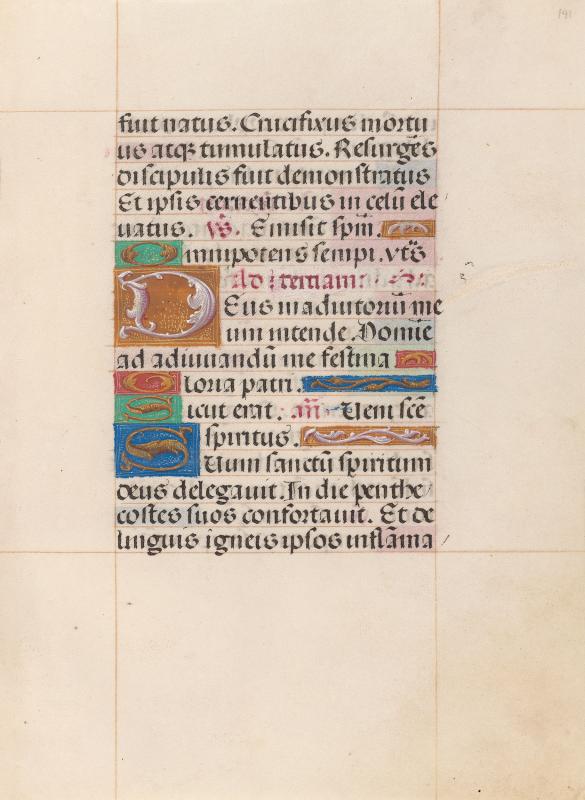 191
fuit natus. Crucifixus mortu
us atq3 tumulatus. Resurgēs
discipulis fuit demonstratus
Et ipsis cernentibus in celū ele
uatus. v̄s. Emisit spm̄.
Omnipotens sempi. vts̄
Ad tertiam:
DEus in adiutoriū me
um intende. Domīe
ad adiuuandū me festina
Gloria patri.
Sicut erat. an̄ Ueni scē
spiritus.
SUum sanctū spiritum
deus delegauit. In die penthe
costes suos confortauit. Et de
linguis igneis ipsos inflāma